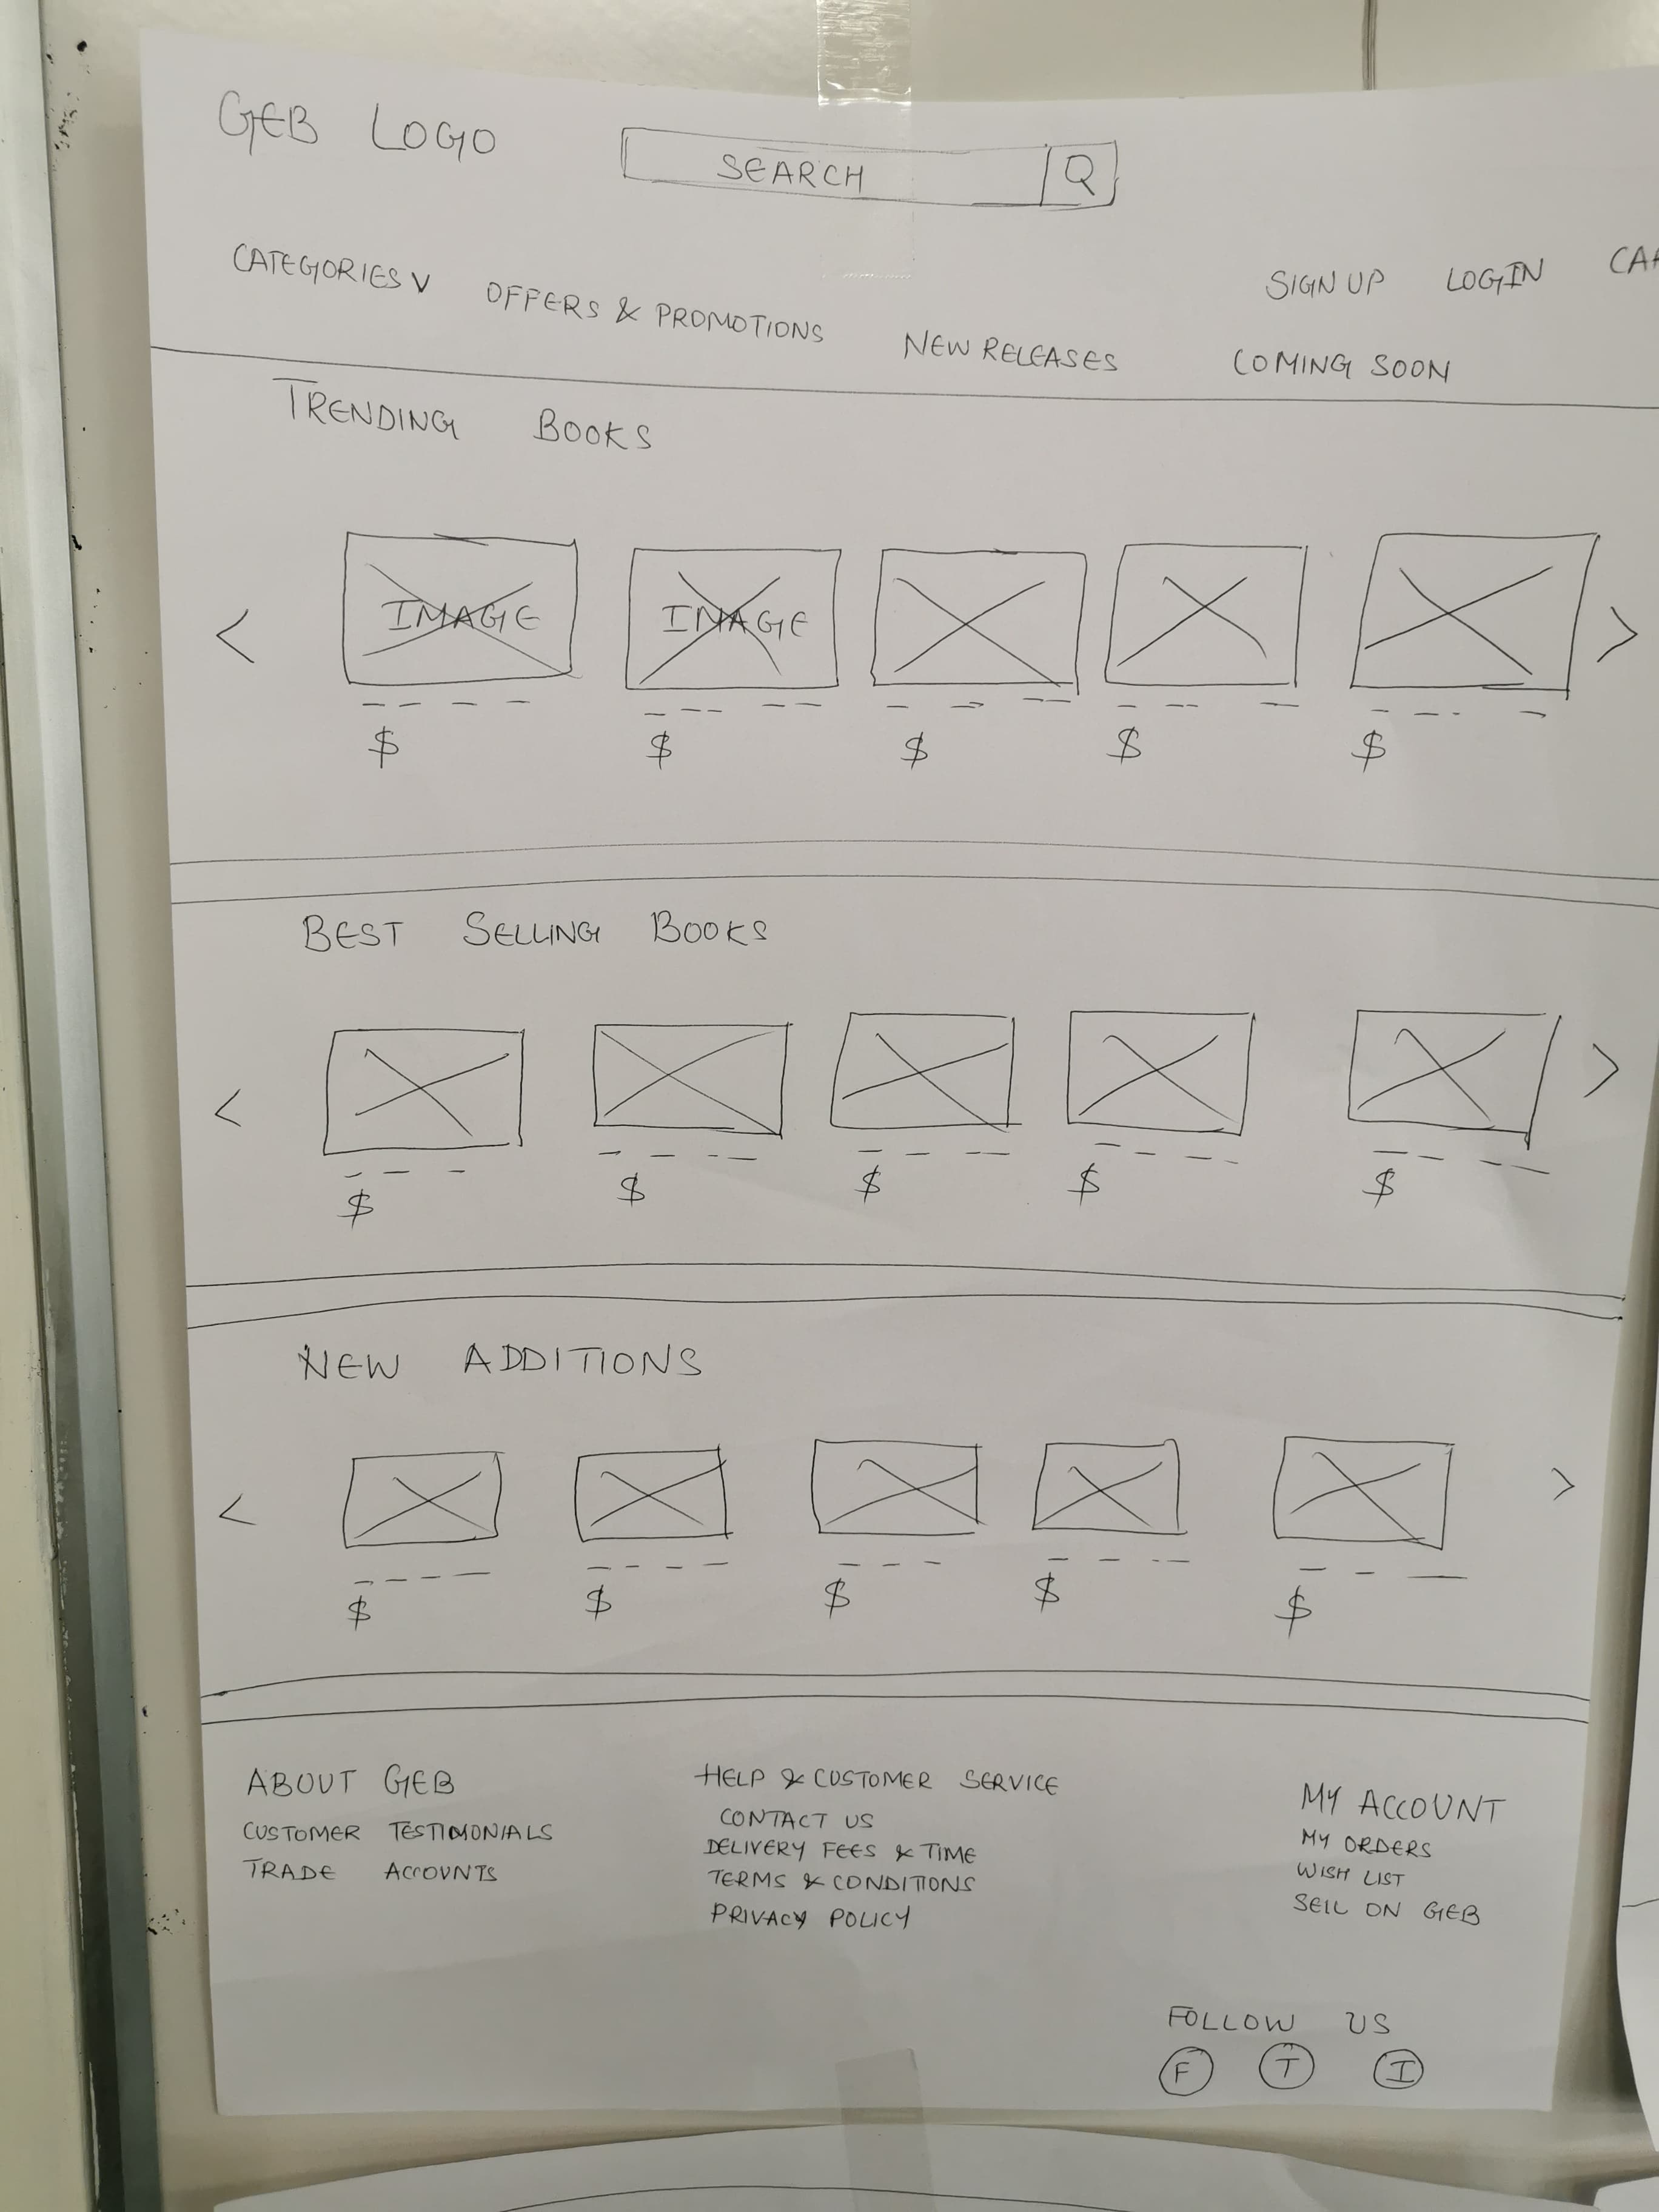 GEB LOGO
SEARCH Q
SIGN UP LOGIN
CATEGORIES V OFFERS & PROMOTIONS NEW RELEASES COMING SOON
TRENDING BOOKS
< IMAGE IMAGE >
$ $ $ $ $
BEST SELLING BOOKS
< >
$ $ $ $ $
NEW ADDITIONS
< >
$ $ $ $ $
ABOUT GEB
CUSTOMER TESTIMONIALS
TRADE ACCOUNTS
HELP & CUSTOMER SERVICE
CONTACT US
DELIVERY FEES & TIME
TERMS & CONDITIONS
PRIVACY POLICY
MY ACCOUNT
MY ORDERS
WISH LIST
SELL ON GEB
FOLLOW US
F T I